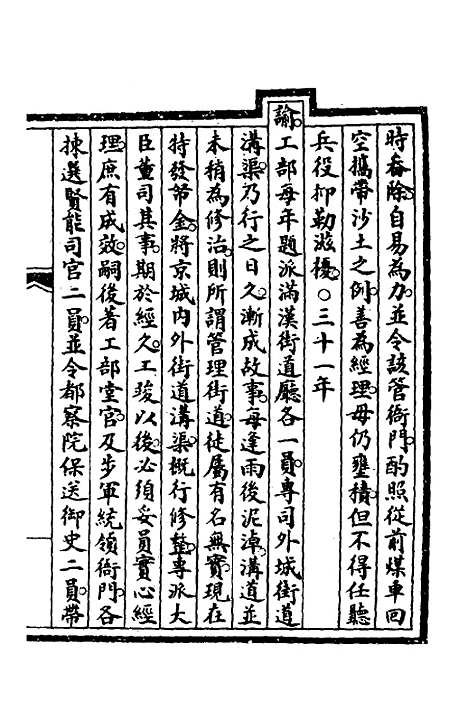 時畚除自易為力並令該管衙門酌照從前煤車回
空攜帶沙土之例善為經理毋仍壅積但不得任聽
兵役抑勒滋擾○三十一年
諭工部每年題派滿漢街道廳各一員專司外城街道
溝渠乃行之日久漸成故事每逢雨後泥淖溝道並
未稍為修治則所謂管理街道徒屬有名無實現在
特發帑金將京城內外街道溝渠概行修整專派大
臣董司其事期於經久工竣以後必須妥員實心經
理庶有成效嗣後著工部堂官及步軍統領衙門各
揀選賢能司官二員並令都察院保送御史二員帶